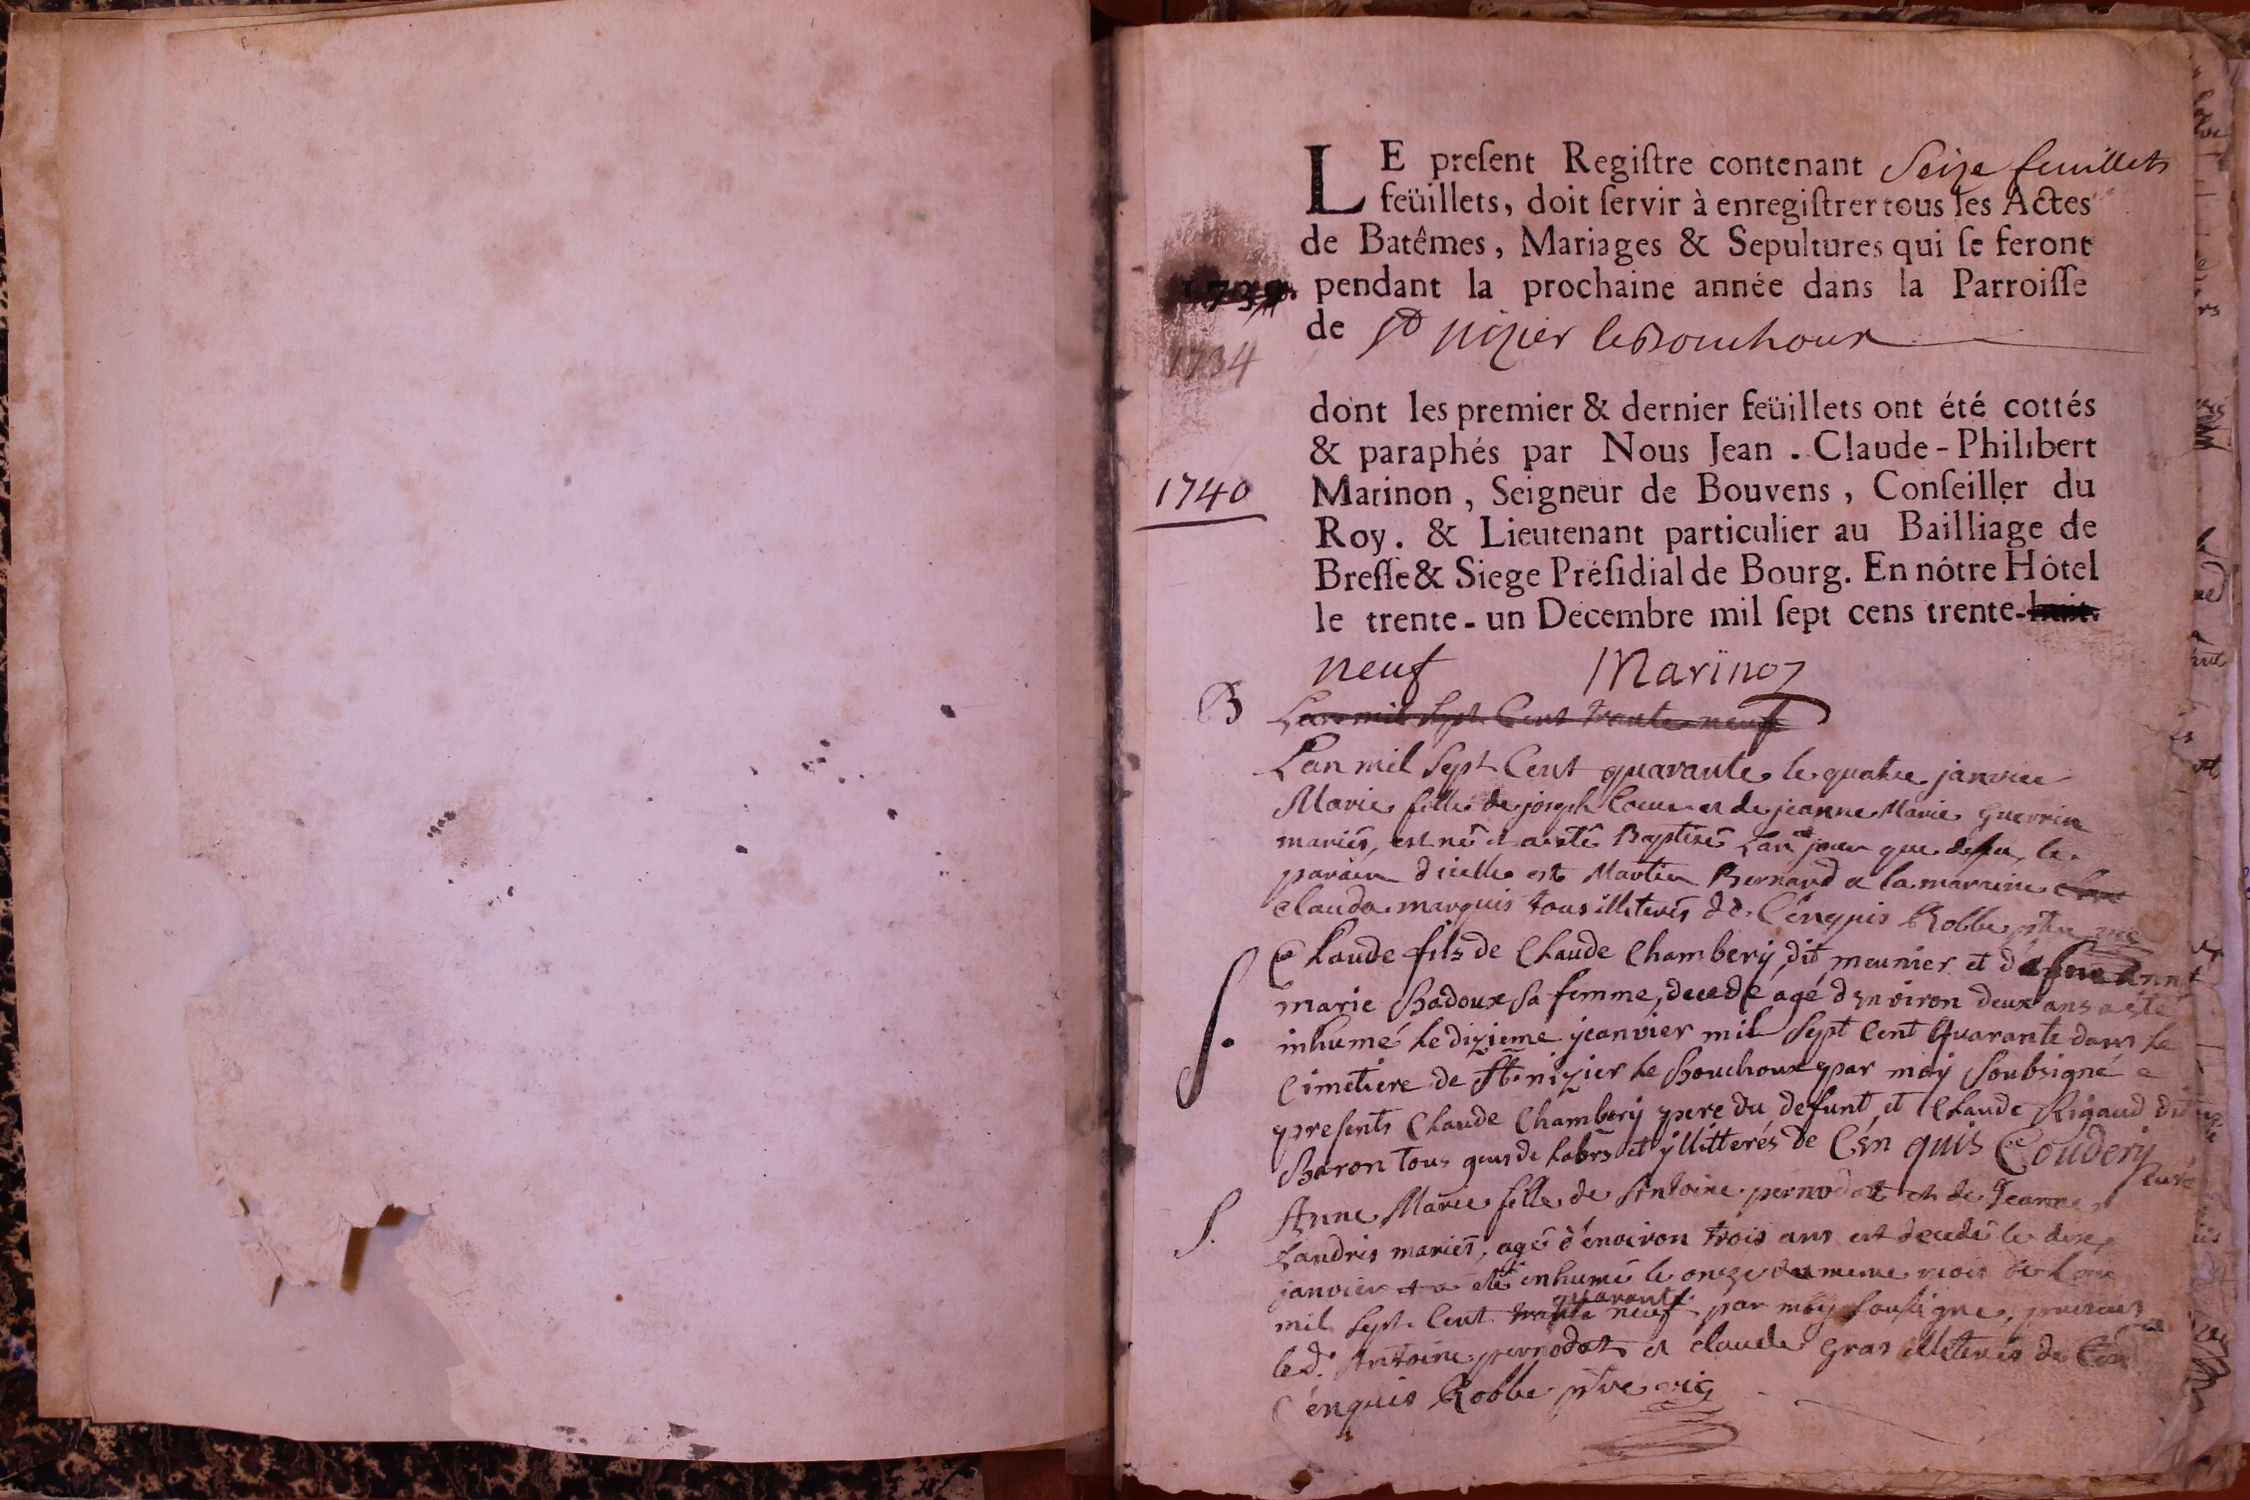 LE preſent Regiſtre contenant Seize feuillets
feüillets, doit ſervir à enregiſtrer tous les Actes
de Batêmes, Mariages & Sepultures qui ſe feront
1739. pendant la prochaine année dans la Parroiſſe
de St nizier le Bouchoux
1734
dont les premier & dernier feüillets ont été cottés
& paraphés par Nous Jean . Claude - Philibert
1740 Marinon , Seigneur de Bouvens , Conſeiller du
Roy . & Lieutenant particulier au Bailliage de
Breſſe & Siege Préſidial de Bourg. En nôtre Hôtel
le trente - un Décembre mil ſept cens trente-huit.
neuf Marinon
B Lan mil Sept Cent trante neuf
Lan mil Sept Cent quarante le quatre janvier
Marie fille de joseph et de jeanne Marie Guerrin
mariés, est né et a esté Baptisés Lan jour que desu, le
parain dicelle est Martin Bernard et la maraine
Clauda marquis tous illiterés de Cenquis Robbe ptre vic
Claude fils de Claude Chambery dit meunier et Anne
marie Badoux sa femme, decede agé d'environ deux ans a esté
S. inhumé le dizieme jeanvier mil Sept Cent Quarante dans le
Cimetiere de St. nizier le Bouchoux par moy Soubsigné
presents Claude Chambery pere du defunt et Claude Rigaud dit
Baron tous gens de labrs et yllitterés de Cén quis Coudery
curé
S. Anne Marie fille de Antoine pernodat et de Jeanne
Landris mariés, agé d'environ trois ans est decedé le dix
janvier et a été inhumé le onze du meme mois de L'an
quarante
mil Sept Cent trante neuf par moy Sousigne, presents
led. Antoine pernodat et claude Gras illiterés de
Cénquis Robbe ptre vic